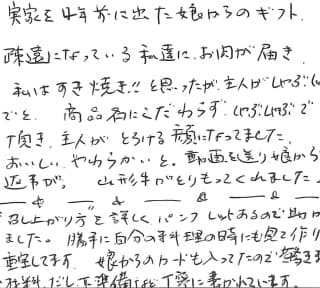 実家を4年前に出た娘からのギフト.
疎遠になっている私達に.お肉が届き.
私はすき焼き!!と思ったが.主人がしゃぶし
でと. 商品名にこだわらず.しゃぶしゃぶで
頂き.主人が とろける顔になってました.
おいしい.やわらかいと。動画を送り娘から
返事が。 山形牛がとりもってくれました.
召し上がり方を詳しくパンフレットあるので助か
ました。勝手に自分の料理の時にも見て作り
重宝してます. 娘からのカードも入ってたので
材料.だし.下準備など丁寧に書かれています.